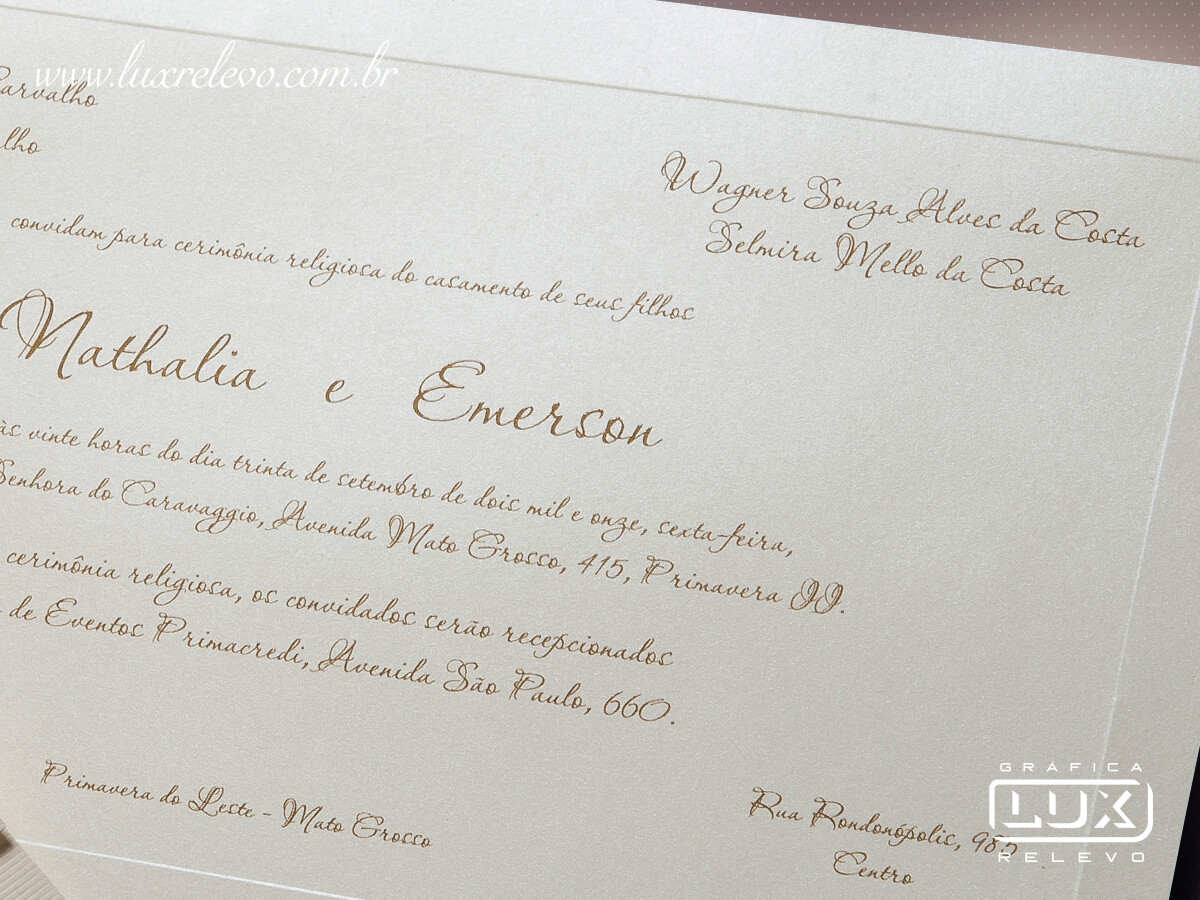 www.luxrelevo.com.br
Carvalho
Wagner Souza Alves da Costa
Selmira Mello da Costa
convidam para cerimônia religiosa do casamento de seus filhos
Nathalia e Emerson
às vinte horas do dia trinta de setembro de dois mil e onze, sexta-feira,
Senhora do Caravaggio, Avenida Mato Grosso, 415, Primavera II.
cerimônia religiosa, os convidados serão recepcionados
de Eventos Primacredi, Avenida São Paulo, 660.
Primavera do Leste - Mato Grosso
Rua Rondonópolis,
Centro
GRÁFICA
LUX
RELEVO